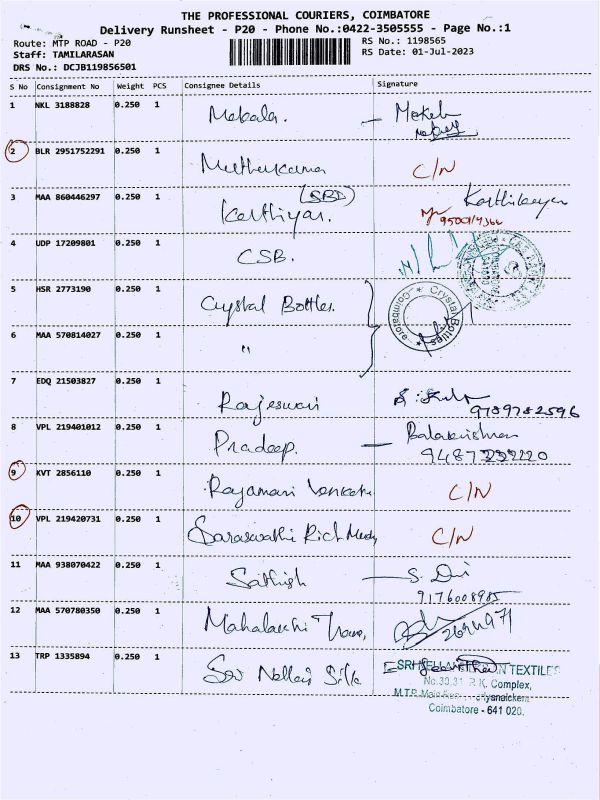 THE PROFESSIONAL COURIERS, COIMBATORE
Delivery Runsheet - P20 - Phone No.:0422-3505555 - Page No.:1
Route: MTP ROAD - P20
Staff: TAMILARASAN
DRS No.: DCJB119856501
RS No.: 1198565
RS Date: 01-Jul-2023
S No Consignment No Weight PCS Consignee Details Signature
1 NKL 3188828 0.250 1 Mekala. —
2 BLR 2951752291 0.250 1 Muthukumar C/N
3 MAA 860446297 0.250 1 Karthiyar. (SBI) Karthikeyan
4 UDP 17209801 0.250 1 CSB.
5 HSR 2773190 0.250 1 Crystal Bottles.
Crystal Bottles
Coimbatore
6 MAA 570814027 0.250 1 "
7 EDQ 21503827 0.250 1 Rajeswari
9789782596
8 VPL 219401012 0.250 1 Pradeep. — Balakrishnan
9487232220
9 KVT 2856110 0.250 1 Rajamani Venkate C/N
10 VPL 219420731 0.250 1 Saraswathi Rich C/N
11 MAA 938070422 0.250 1 Sathish —
9176008985
12 MAA 570780350 0.250 1 Mahalakshi
13 TRP 1335894 0.250 1 Sri Nellai Silk
SRI TEXTILES
No.30,31 R.K. Complex,
M.T.P.
Coimbatore - 641 020.